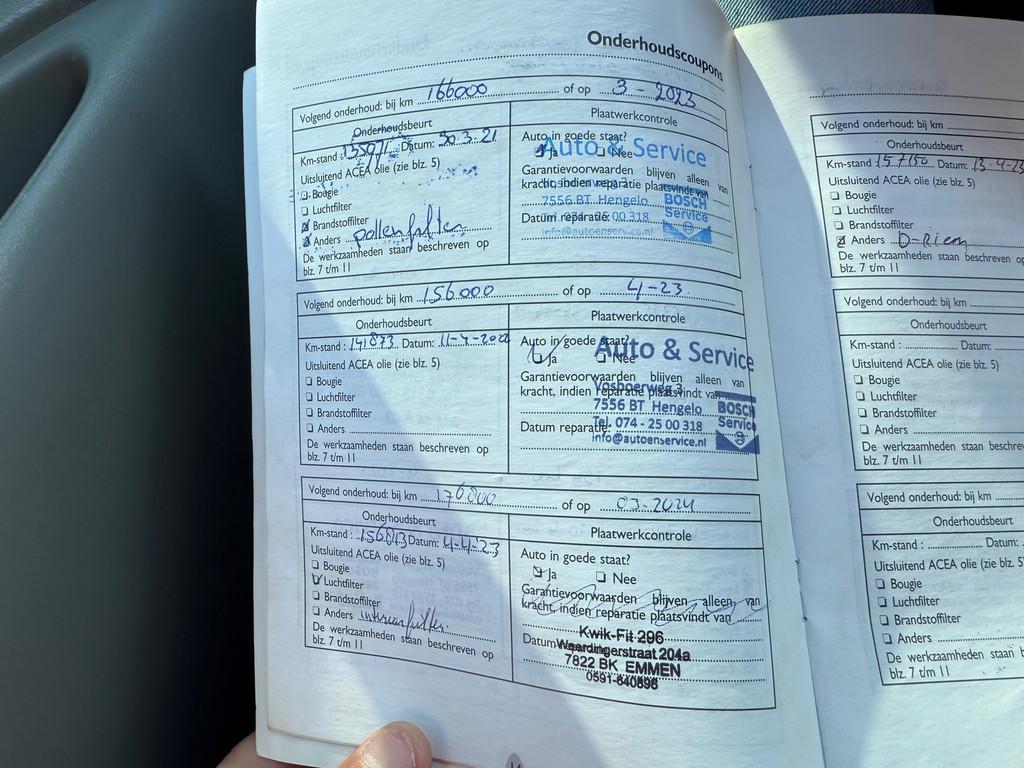 Onderhoudscoupons
Volgend onderhoud: bij km 166000 of op 3-2023
Onderhoudsbeurt
Plaatwerkcontrole
Km-stand : Datum: 30.3.21
Uitsluitend ACEA olie (zie blz. 5)
Bougie
Luchtfilter
Brandstoffilter
Anders pollenfilter
De werkzaamheden staan beschreven op
blz. 7 t/m 11
Auto in goede staat?
Ja Nee
Auto & Service
Garantievoorwaarden blijven alleen van
kracht, indien reparatie plaatsvindt van
7556 BT Hengelo
BOSCH
Service
Datum reparatie: 00 318
info@autoenservice.nl
Volgend onderhoud: bij km 156000 of op 4-23
Onderhoudsbeurt
Plaatwerkcontrole
Km-stand : 141873 Datum: 11-4-2022
Uitsluitend ACEA olie (zie blz. 5)
Bougie
Luchtfilter
Brandstoffilter
Anders
De werkzaamheden staan beschreven op
blz. 7 t/m 11
Auto in goede staat?
Ja Nee
Auto & Service
Garantievoorwaarden blijven alleen van
kracht, indien reparatie plaatsvindt van
Vosboerweg 3
7556 BT Hengelo
BOSCH
Service
Datum reparatie:
Tel. 074 - 25 00 318
info@autoenservice.nl
Volgend onderhoud: bij km 176000 of op 03-2024
Onderhoudsbeurt
Plaatwerkcontrole
Km-stand : 156013 Datum: 4-4-'23
Uitsluitend ACEA olie (zie blz. 5)
Bougie
Luchtfilter
Brandstoffilter
Anders interieurfilter.
De werkzaamheden staan beschreven op
blz. 7 t/m 11
Auto in goede staat?
Ja Nee
Garantievoorwaarden blijven alleen van
kracht, indien reparatie plaatsvindt van
Kwik-Fit 296
Datum
Weerdingerstraat 204a
7822 BK EMMEN
0591-640898
Volgend onderhoud: bij km
Onderhoudsbeurt
Km-stand : 157150 Datum: 13-4-23
Uitsluitend ACEA olie (zie blz. 5)
Bougie
Luchtfilter
Brandstoffilter
Anders D-Riem
De werkzaamheden staan beschreven op
blz. 7 t/m 11
Volgend onderhoud: bij km
Onderhoudsbeurt
Km-stand : Datum:
Uitsluitend ACEA olie (zie blz. 5)
Bougie
Luchtfilter
Brandstoffilter
Anders
De werkzaamheden staan beschreven
blz. 7 t/m 11
Volgend onderhoud: bij km
Onderhoudsbeurt
Km-stand : Datum:
Uitsluitend ACEA olie (zie blz. 5)
Bougie
Luchtfilter
Brandstoffilter
Anders
De werkzaamheden staan
blz. 7 t/m 11